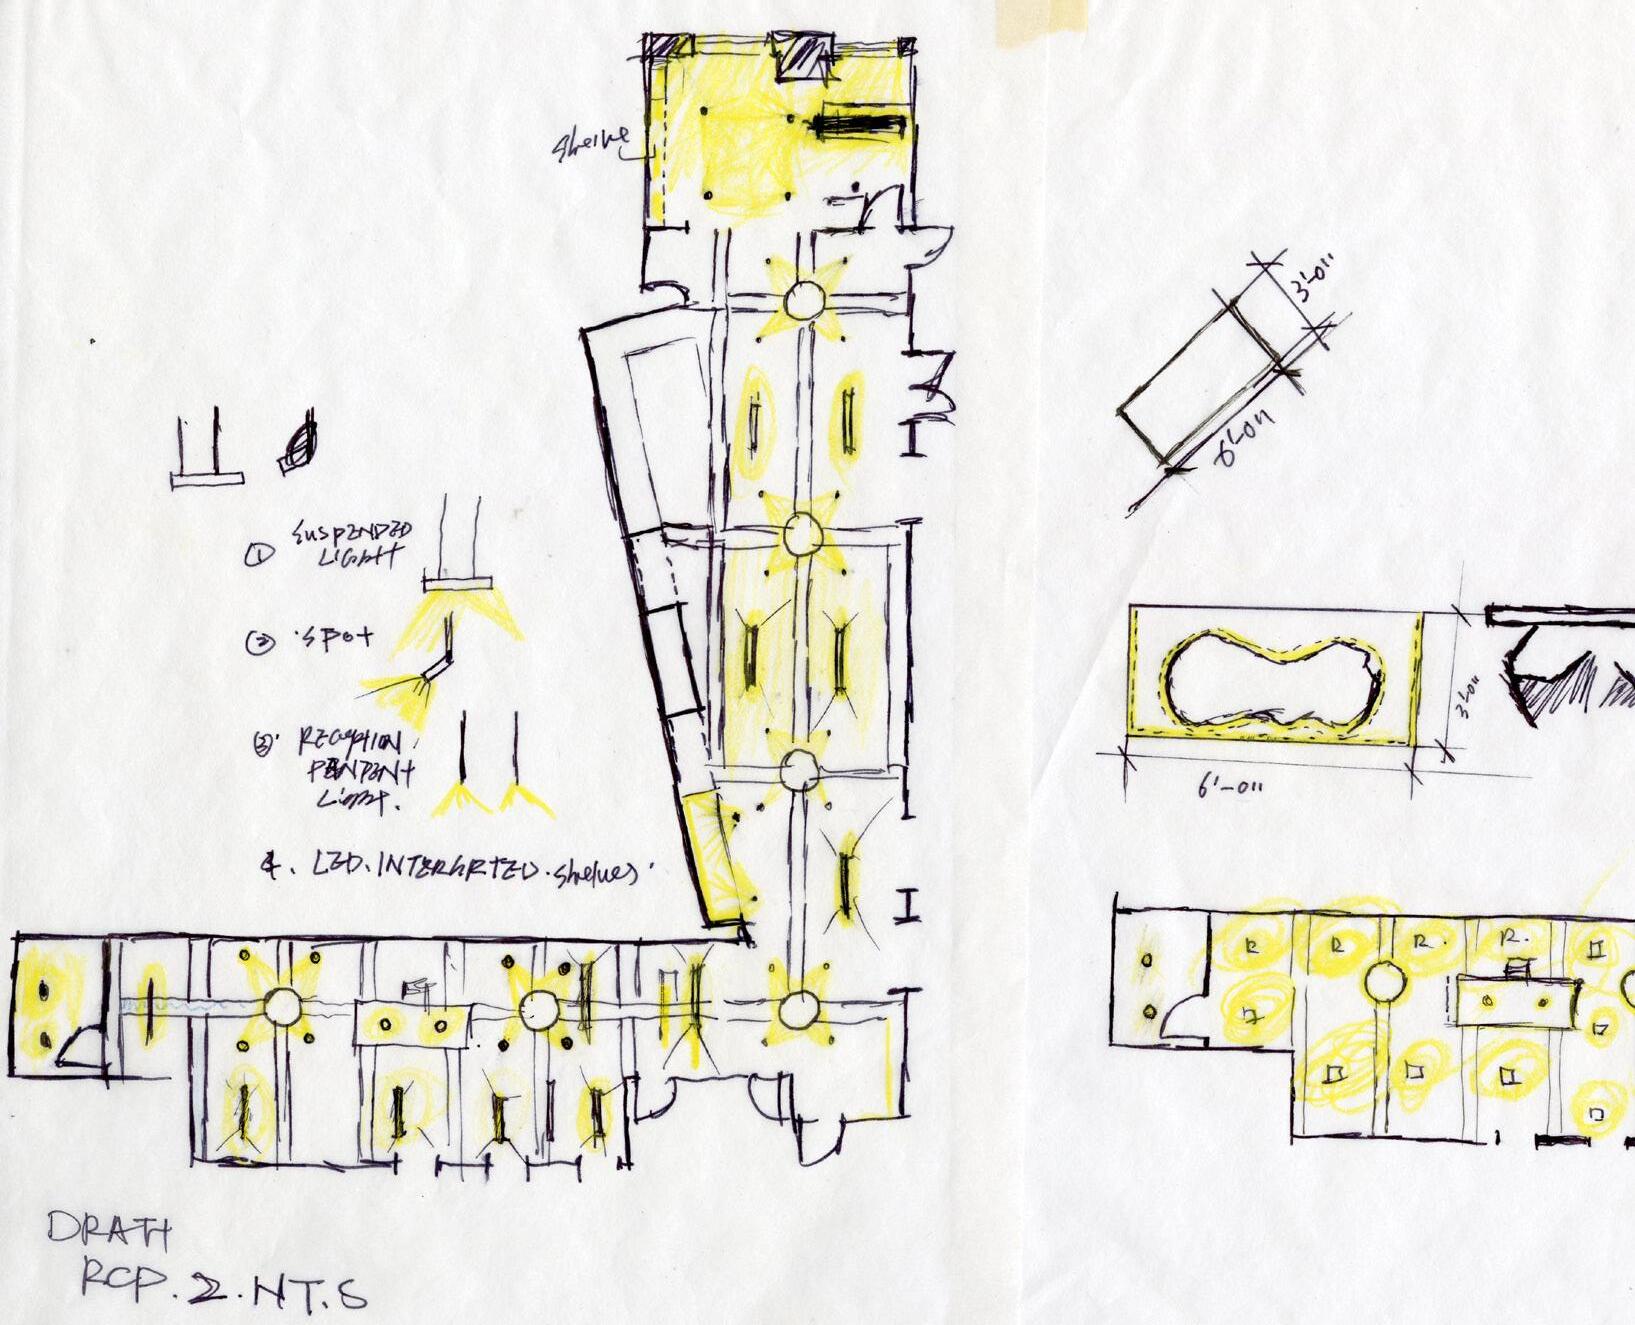 shelve
3'-0"
6'-0"
① SUSPENDED
LIGHT
② SPOT
③ RECEPTION
PENDENT
LIGHT.
4. LED. INTERGRTED. shelves
3'-0"
6'-0"
R
R.
R.
R.
DRAFT
RCP. 2. NT.S